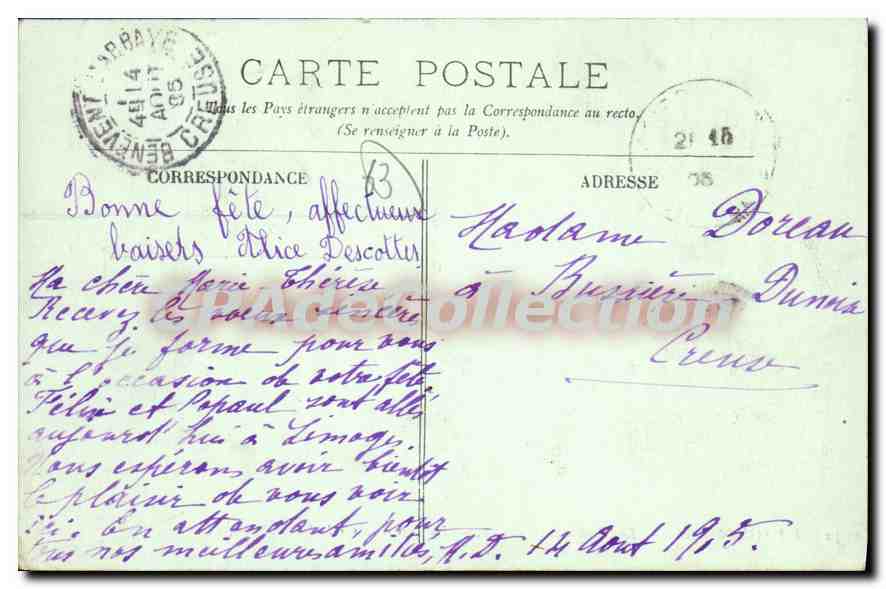 CARTE POSTALE
Tous les Pays étrangers n'acceptent pas la Correspondance au recto.
(Se renseigner à la Poste).
CORRESPONDANCE
ADRESSE
BENEVENT L'ABBAYE
CREUSE
14
AOUT
05
15
05
63
Bonne fête, affectueux
baisers Alice Descottes
Ma chère Marie Thérèse
Recevez les vœux sincères
que je forme pour vous
à l'occasion de votre fête
Félix et Popaul sont allés
aujourd'hui à Limoges.
Nous espérons avoir bientôt
le plaisir de vous voir
ici. En attendant, pour
tous nos meilleures amitiés, A. D. 14 Aout 1905.
Madame Doreau
à Busnière Dunoise
Creuse
CPAdeCollection